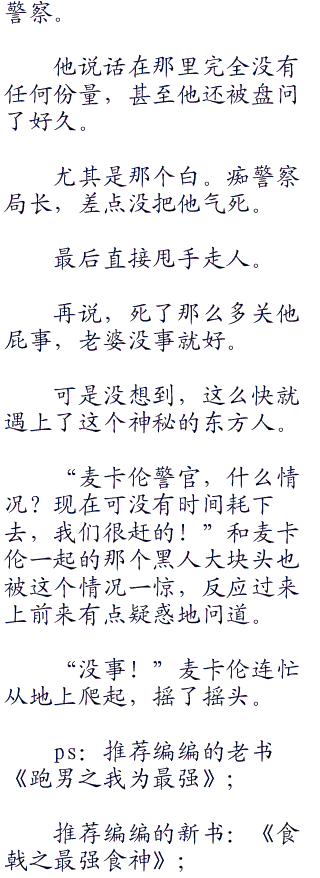 警察。
他说话在那里完全没有
任何份量，甚至他还被盘问
了好久。
尤其是那个白。痴警察
局长，差点没把他气死。
最后直接甩手走人。
再说，死了那么多关他
屁事，老婆没事就好。
可是没想到，这么快就
遇上了这个神秘的东方人。
“麦卡伦警官，什么情
况？现在可没有时间耗下
去，我们很赶的！”和麦卡
伦一起的那个黑人大块头也
被这个情况一惊，反应过来
上前来有点疑惑地问道。
“没事！”麦卡伦连忙
从地上爬起，摇了摇头。
ps：推荐编编的老书
《跑男之我为最强》；
推荐编编的新书：《食
戟之最强食神》；